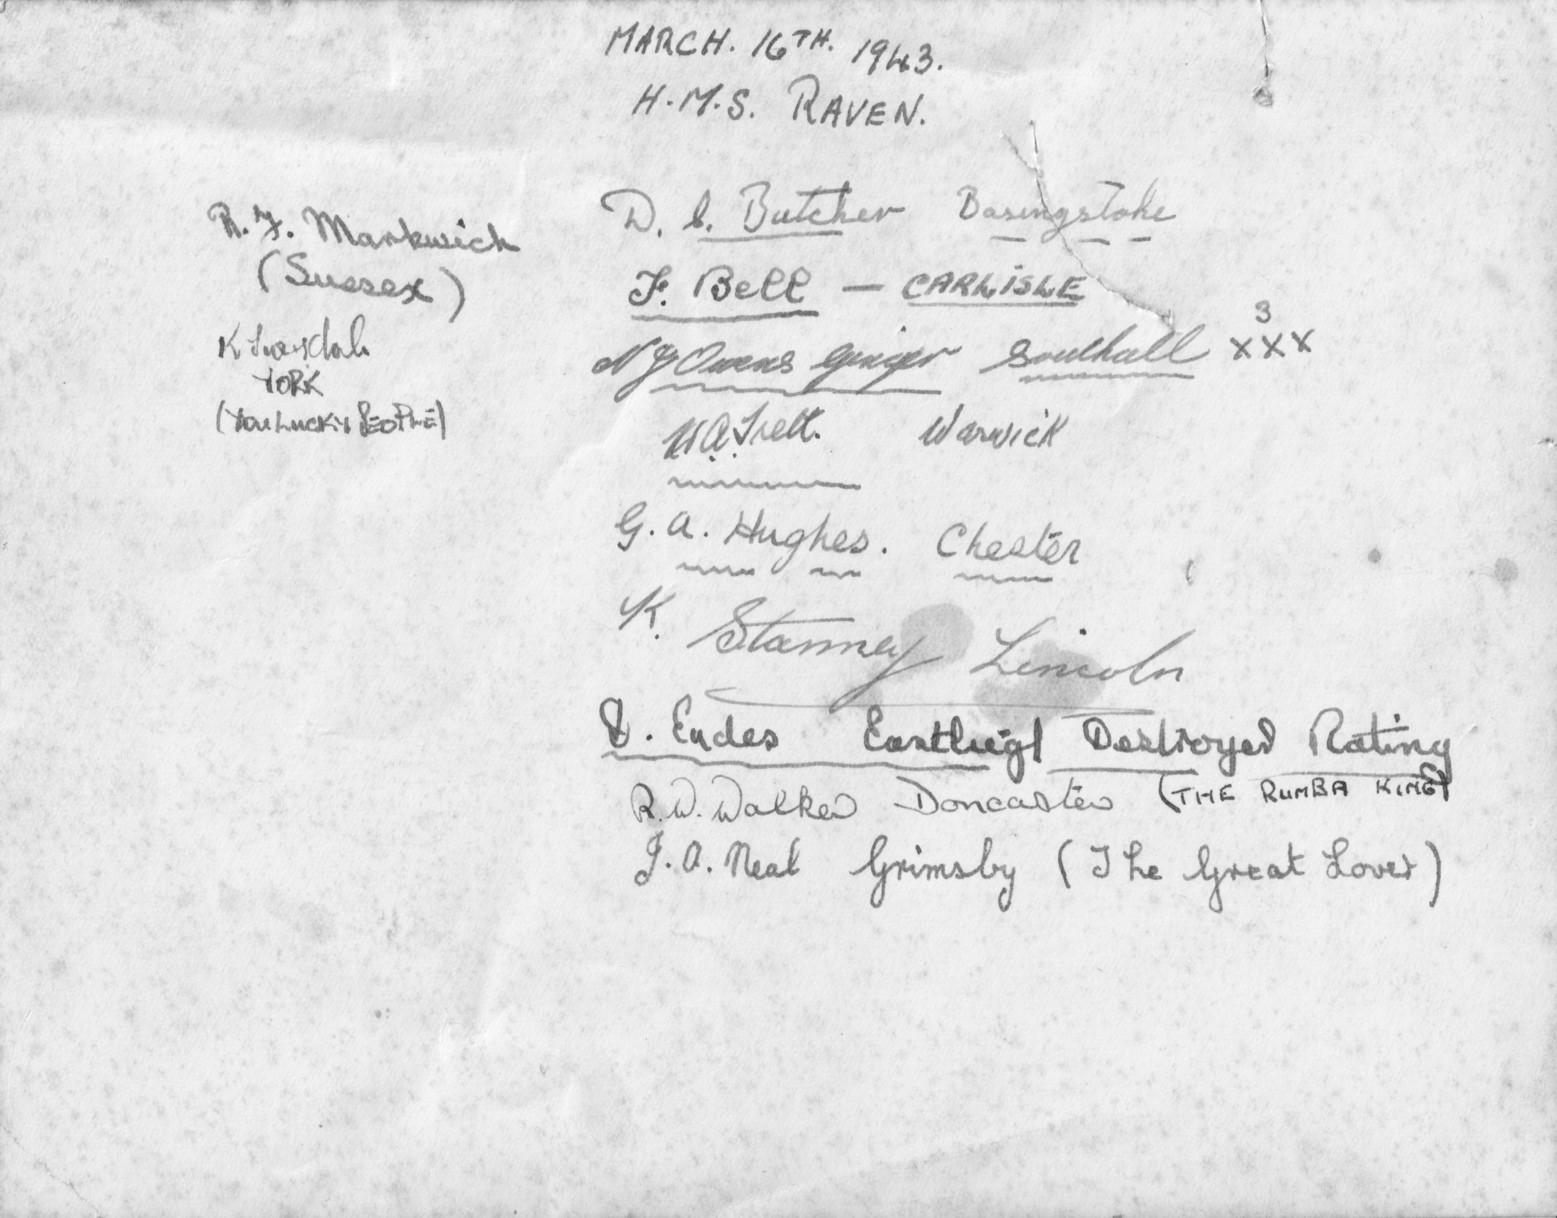 MARCH. 16TH. 1943.
H.M.S. RAVEN.
R. F. Markwick
(Sussex)
K
YORK
(YOU LUCKY PEOPLE)
D. S. Butcher Basingstoke
F. Bell — CARLISLE
N J Owens Ginger Southall 3 XXX
W.A. Trett. Warwick
G. A. Hughes. Chester
K. Stanney Lincoln
Eudes Eastleigh Destroyed Rating
R. W. Walker Doncaster (THE RUMBA KING)
J. A. Neal Grimsby (The Great Lover)